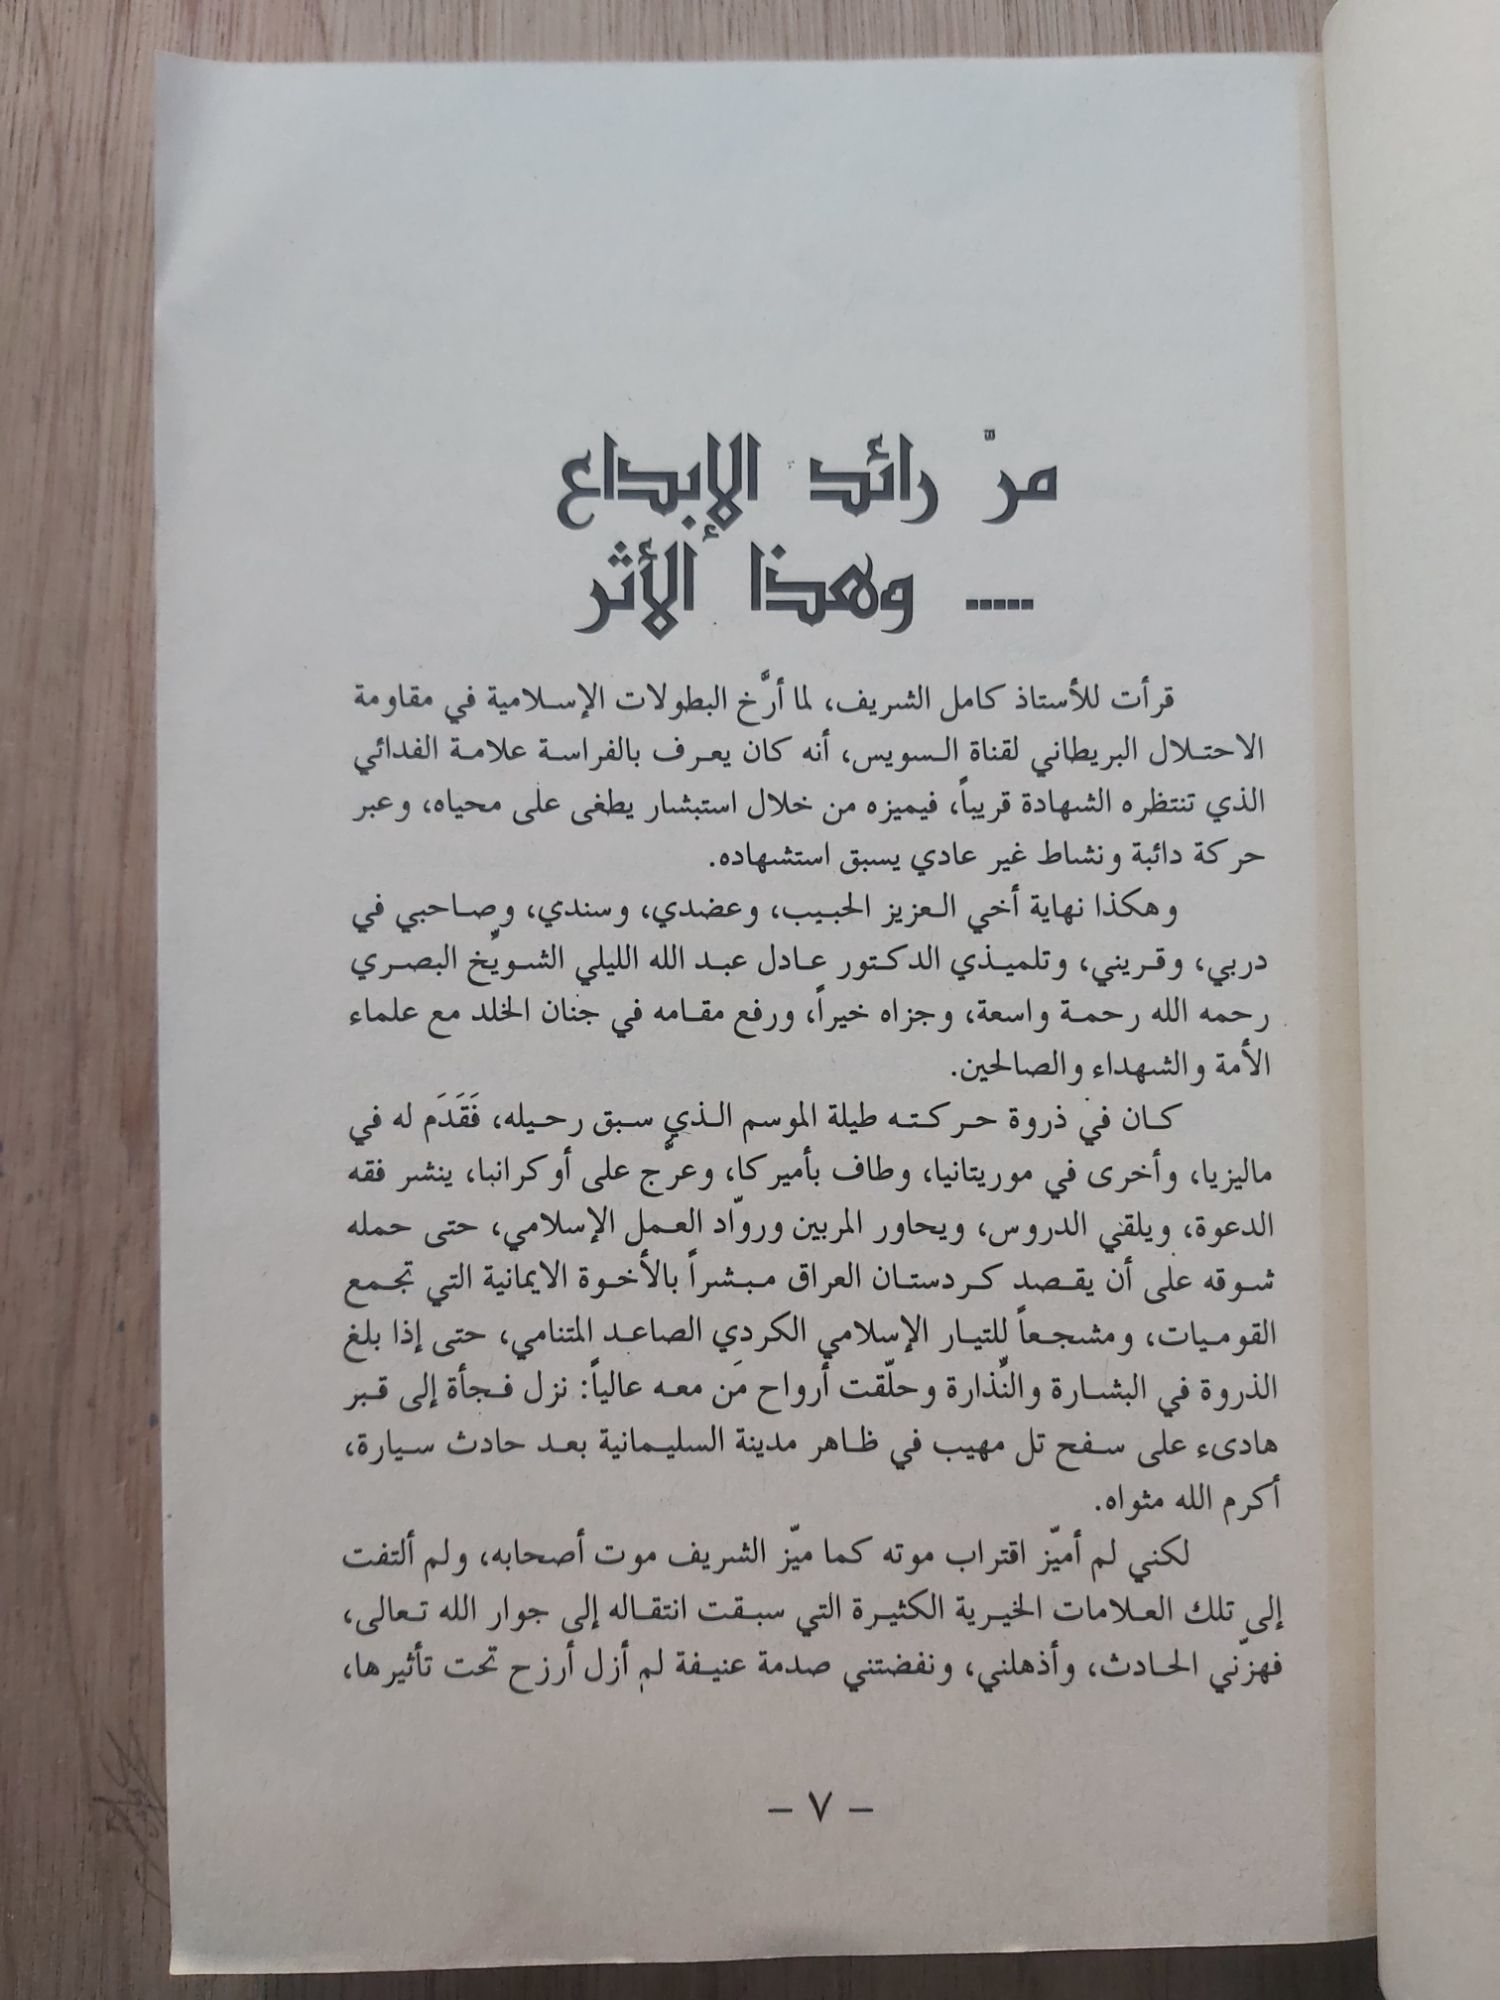 مرّ رائد الإبداع
----- وهذا الأثر
قرأت للأستاذ كامل الشريف، لما أرَّخ البطولات الإسلامية في مقاومة
الاحتلال البريطاني لقناة السويس، أنه كان يعرف بالفراسة علامة الفدائي
الذي تنتظره الشهادة قريباً، فيميزه من خلال استبشار يطغى على محياه، وعبر
حركة دائبة ونشاط غير عادي يسبق استشهاده.
وهكذا نهاية أخي العزيز الحبيب، وعضدي، وسندي، وصاحبي في
دربي، وقريني، وتلميذي الدكتور عادل عبد الله الليلي الشويِّخ البصري
رحمه الله رحمة واسعة، وجزاه خيراً، ورفع مقامه في جنان الخلد مع علماء
الأمة والشهداء والصالحين.
كان في ذروة حركته طيلة الموسم الذي سبق رحيله، فَقَدَم له في
ماليزيا، وأخرى في موريتانيا، وطاف بأميركا، وعرَّج على أوكرانبا، ينشر فقه
الدعوة، ويلقي الدروس، ويحاور المربين وروّاد العمل الإسلامي، حتى حمله
شوقه على أن يقصد كردستان العراق مبشراً بالأخوة الايمانية التي تجمع
القوميات، ومشجعاً للتيار الإسلامي الكردي الصاعد المتنامي، حتى إذا بلغ
الذروة في البشارة والنِّذارة وحلّقت أرواح مَن معه عالياً: نزل فجأة إلى قبر
هادىء على سفح تل مهيب في ظاهر مدينة السليمانية بعد حادث سيارة،
أكرم الله مثواه.
لكني لم أميّز اقتراب موته كما ميّز الشريف موت أصحابه، ولم ألتفت
إلى تلك العلامات الخيرية الكثيرة التي سبقت انتقاله إلى جوار الله تعالى،
فهزّني الحادث، وأذهلني، ونفضتني صدمة عنيفة لم أزل أرزح تحت تأثيرها،
– ٧ –